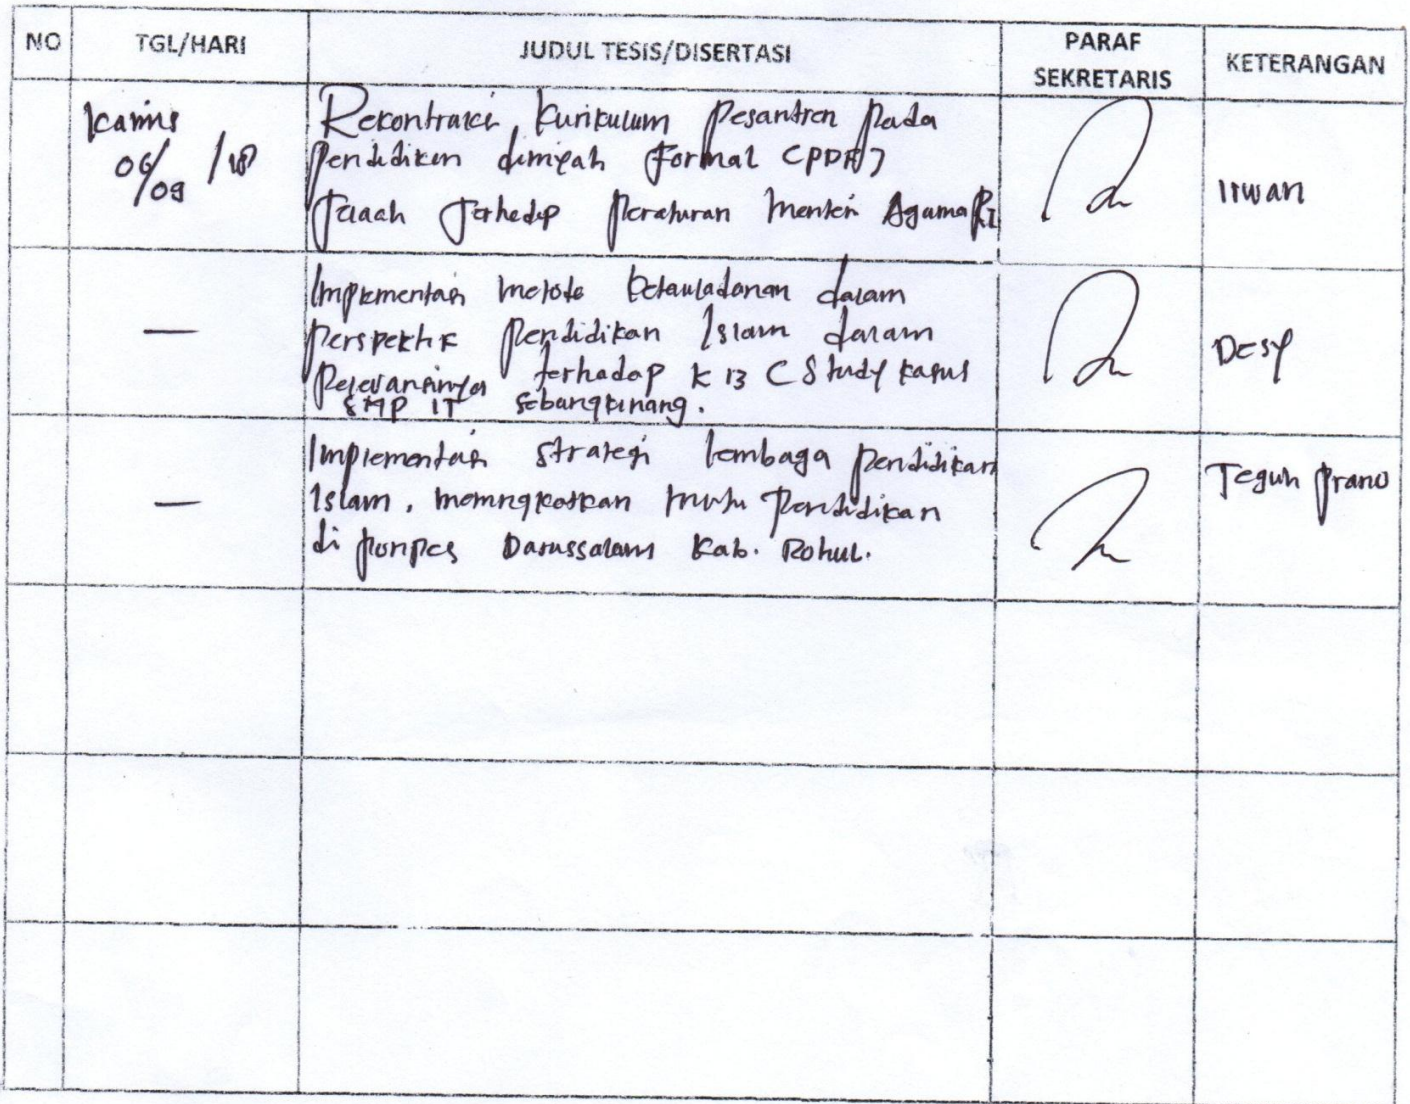 NO TGL/HARI JUDUL TESIS/DISERTASI PARAF SEKRETARIS KETERANGAN
Kamis
06/09 /18
Rekontruksi Kurikulum Pesantren Pada
Pendidikan diniyah Formal (PDF)
Telaah Terhadap Peraturan Menteri Agama RI
Irwan
—
Implementasi metode Ketauladanan dalam
Perspektif Pendidikan Islam dalam
Relevansinya terhadap K13 (Study Kasus
SMP IT Sebangkinang.
Desy
—
Implementasi strategi lembaga pendidikan
Islam. meningkatkan mutu Pendidikan
di ponpes Darussalam Kab. Rohul.
Teguh